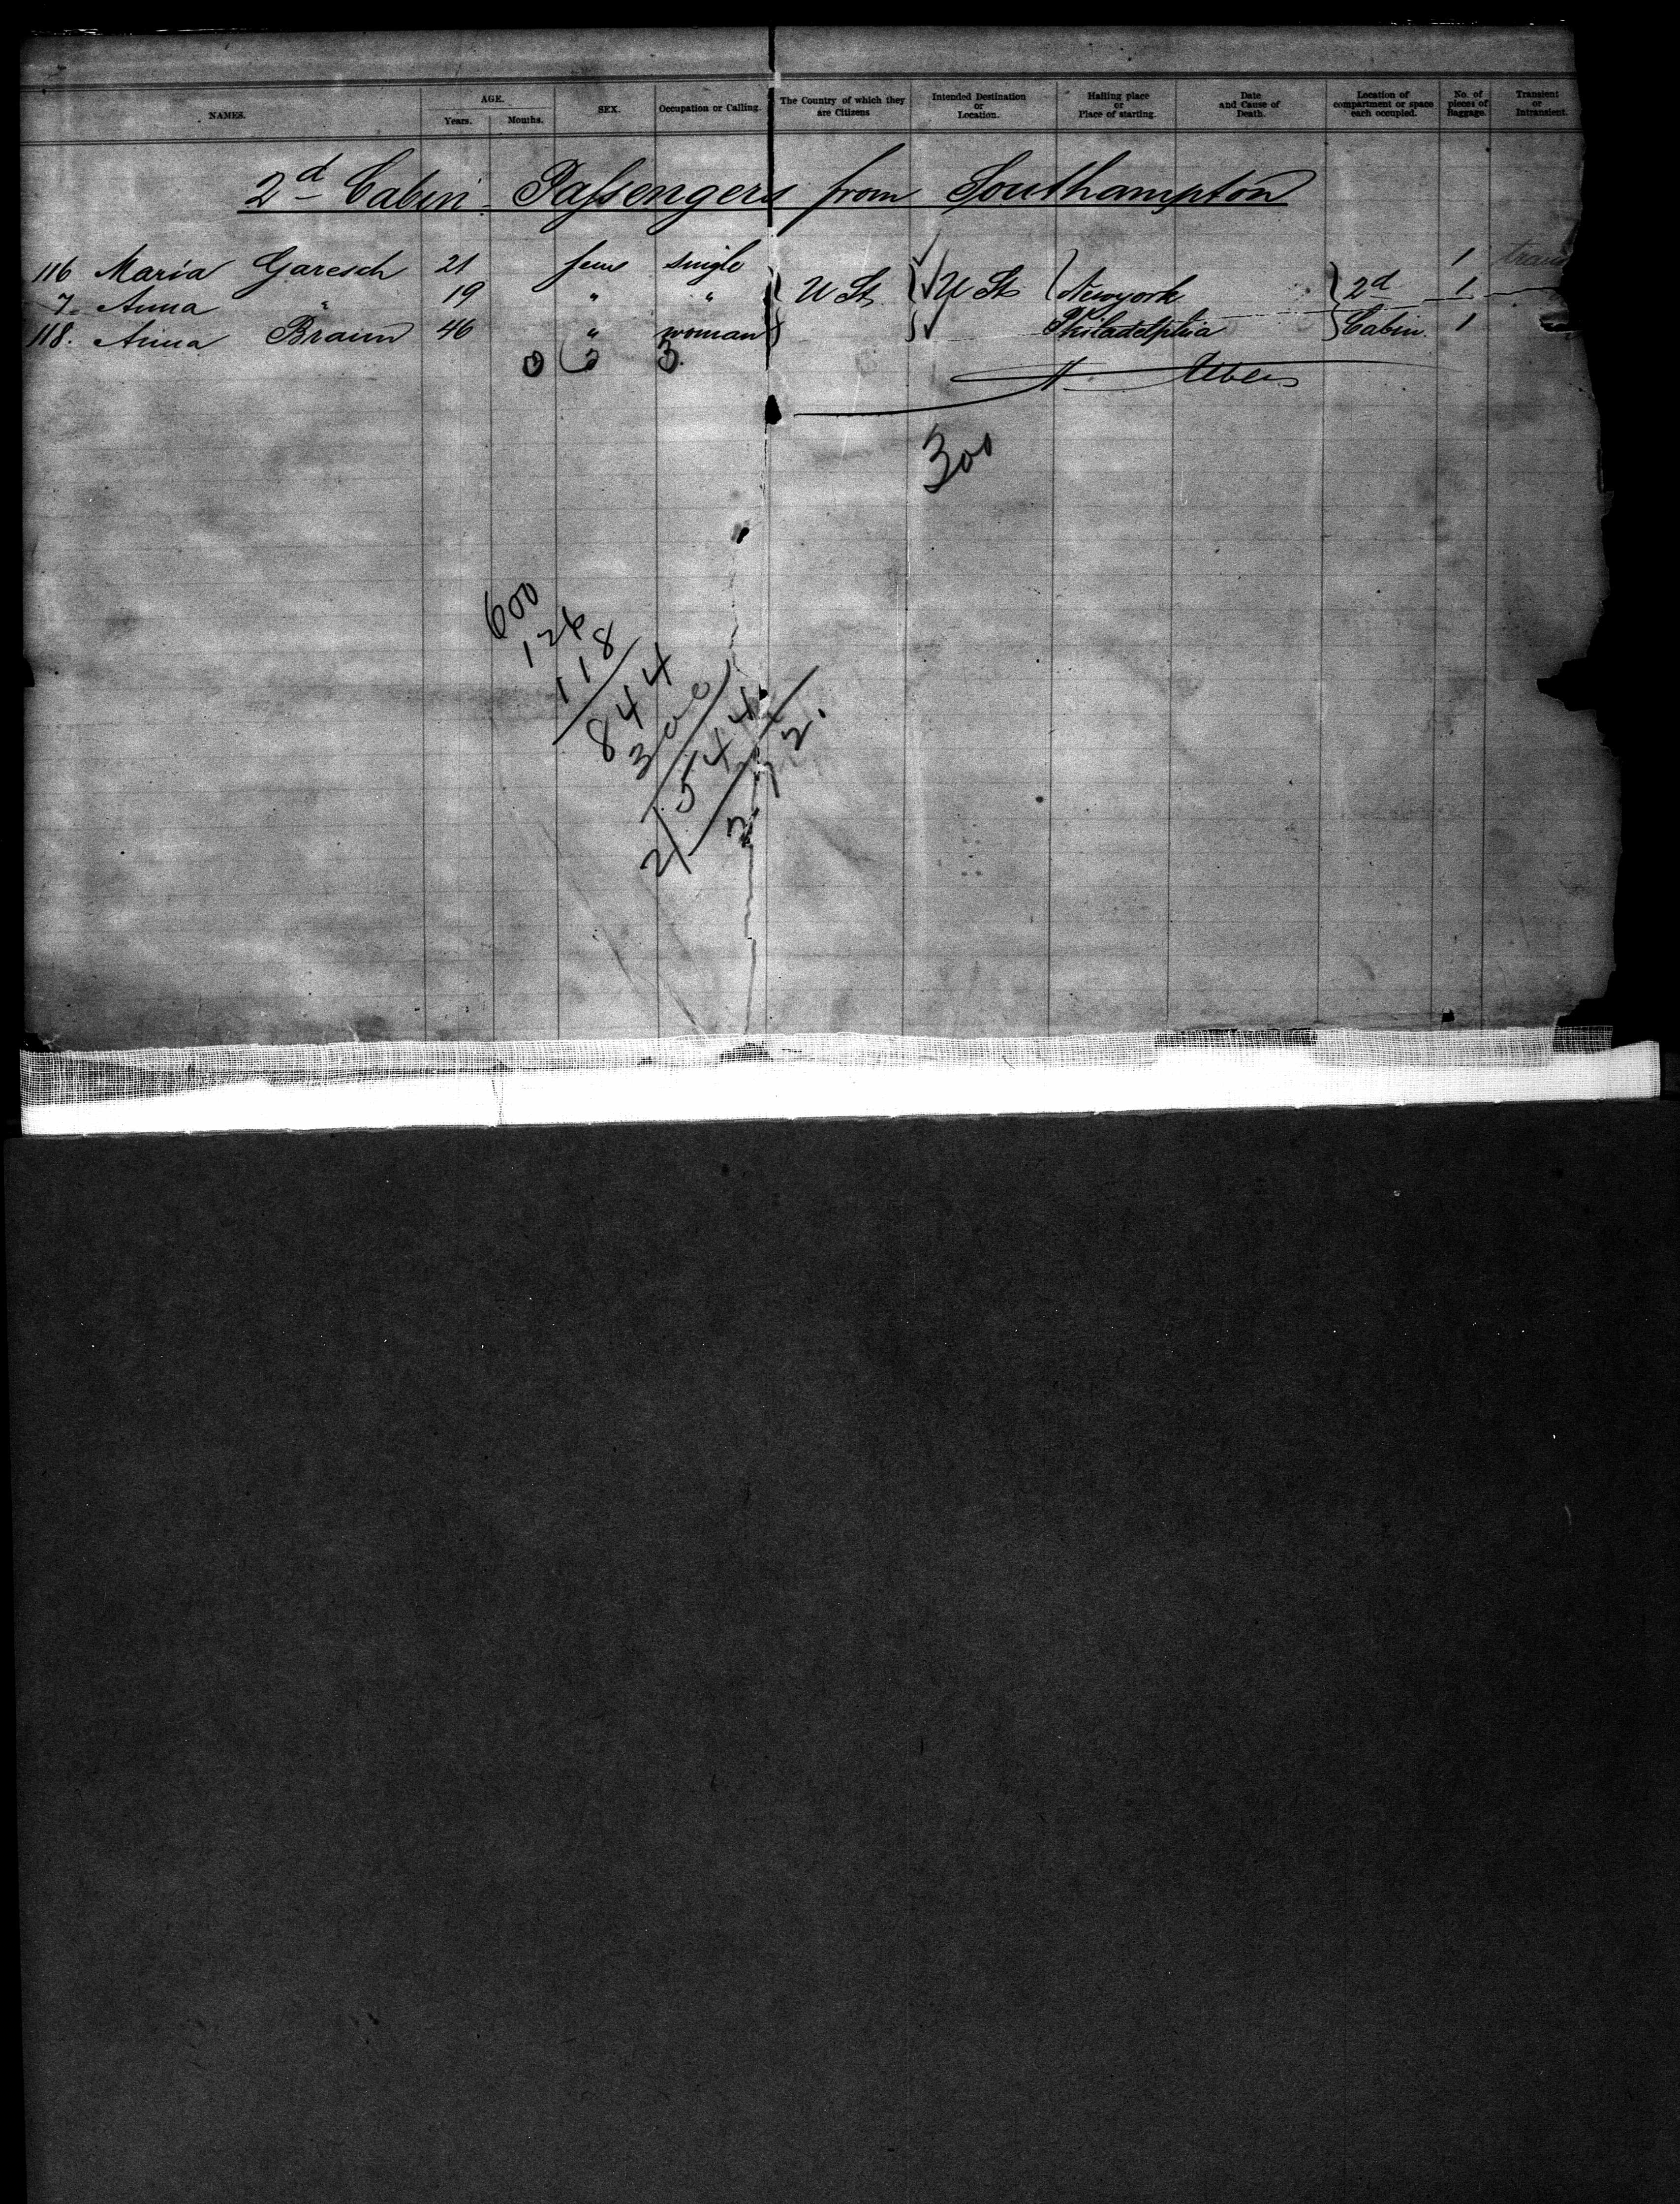 NAMES. AGE. Years. Months. SEX. Occupation or Calling. The Country of which they are Citizens Intended Destination or Location. Hailing place or Place of starting. Date and Cause of Death. Location of compartment or space each occupied. No. of pieces of Baggage. Transient or Intransient.
2d Cabin Passengers from Southampton
116 Maria Garesch 21 fem single 1
7. Anna " 19 " " U St U St Newyork 2d 1
118. Anna Braun 46 " woman Philadelphia Cabin. 1
0 3 3.
300
600
126
118
844
300
2/ 544
272.